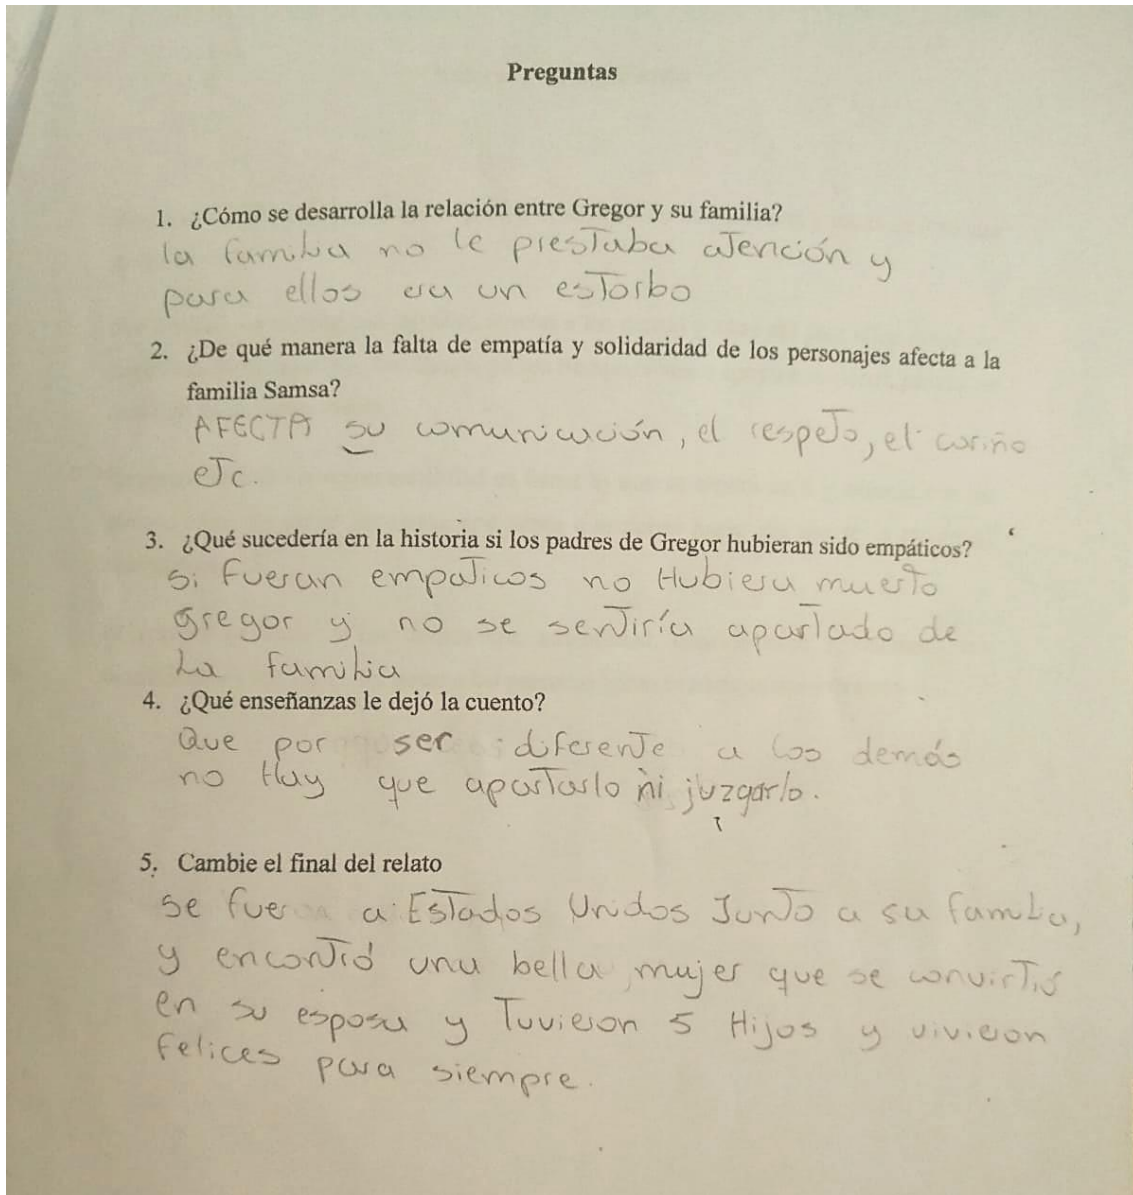 Preguntas
1. ¿Cómo se desarrolla la relación entre Gregor y su familia?
la familia no le prestaba atención y
para ellos era un estorbo
2. ¿De qué manera la falta de empatía y solidaridad de los personajes afecta a la
familia Samsa?
AFECTA su comunicación, el respeto, el cariño
etc.
3. ¿Qué sucedería en la historia si los padres de Gregor hubieran sido empáticos?
si fueran empaticos no Hubiera muerto
gregor y no se sentiría apartado de
La familia
4. ¿Qué enseñanzas le dejó la cuento?
Que por ser diferente a los demás
no Hay que apartarlo ni juzgarlo.
5. Cambie el final del relato
se fue a Estados Unidos Junto a su familia,
y encontró una bella mujer que se convirtió
en su esposa y Tuvieron 5 Hijos y vivieron
felices para siempre.